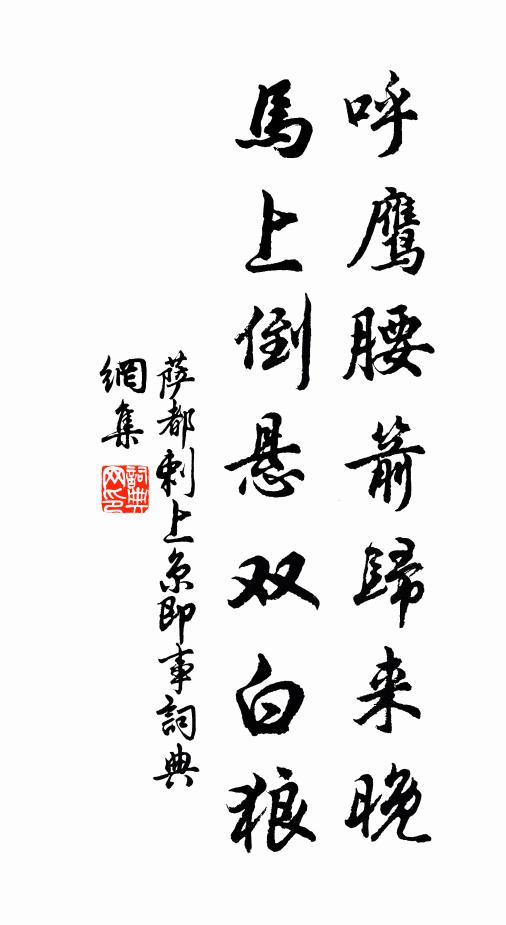 呼鹰腰箭歸来晚
馬上倒悬双白狼
萨都剌上京即事詞典
網集
詞典
网印